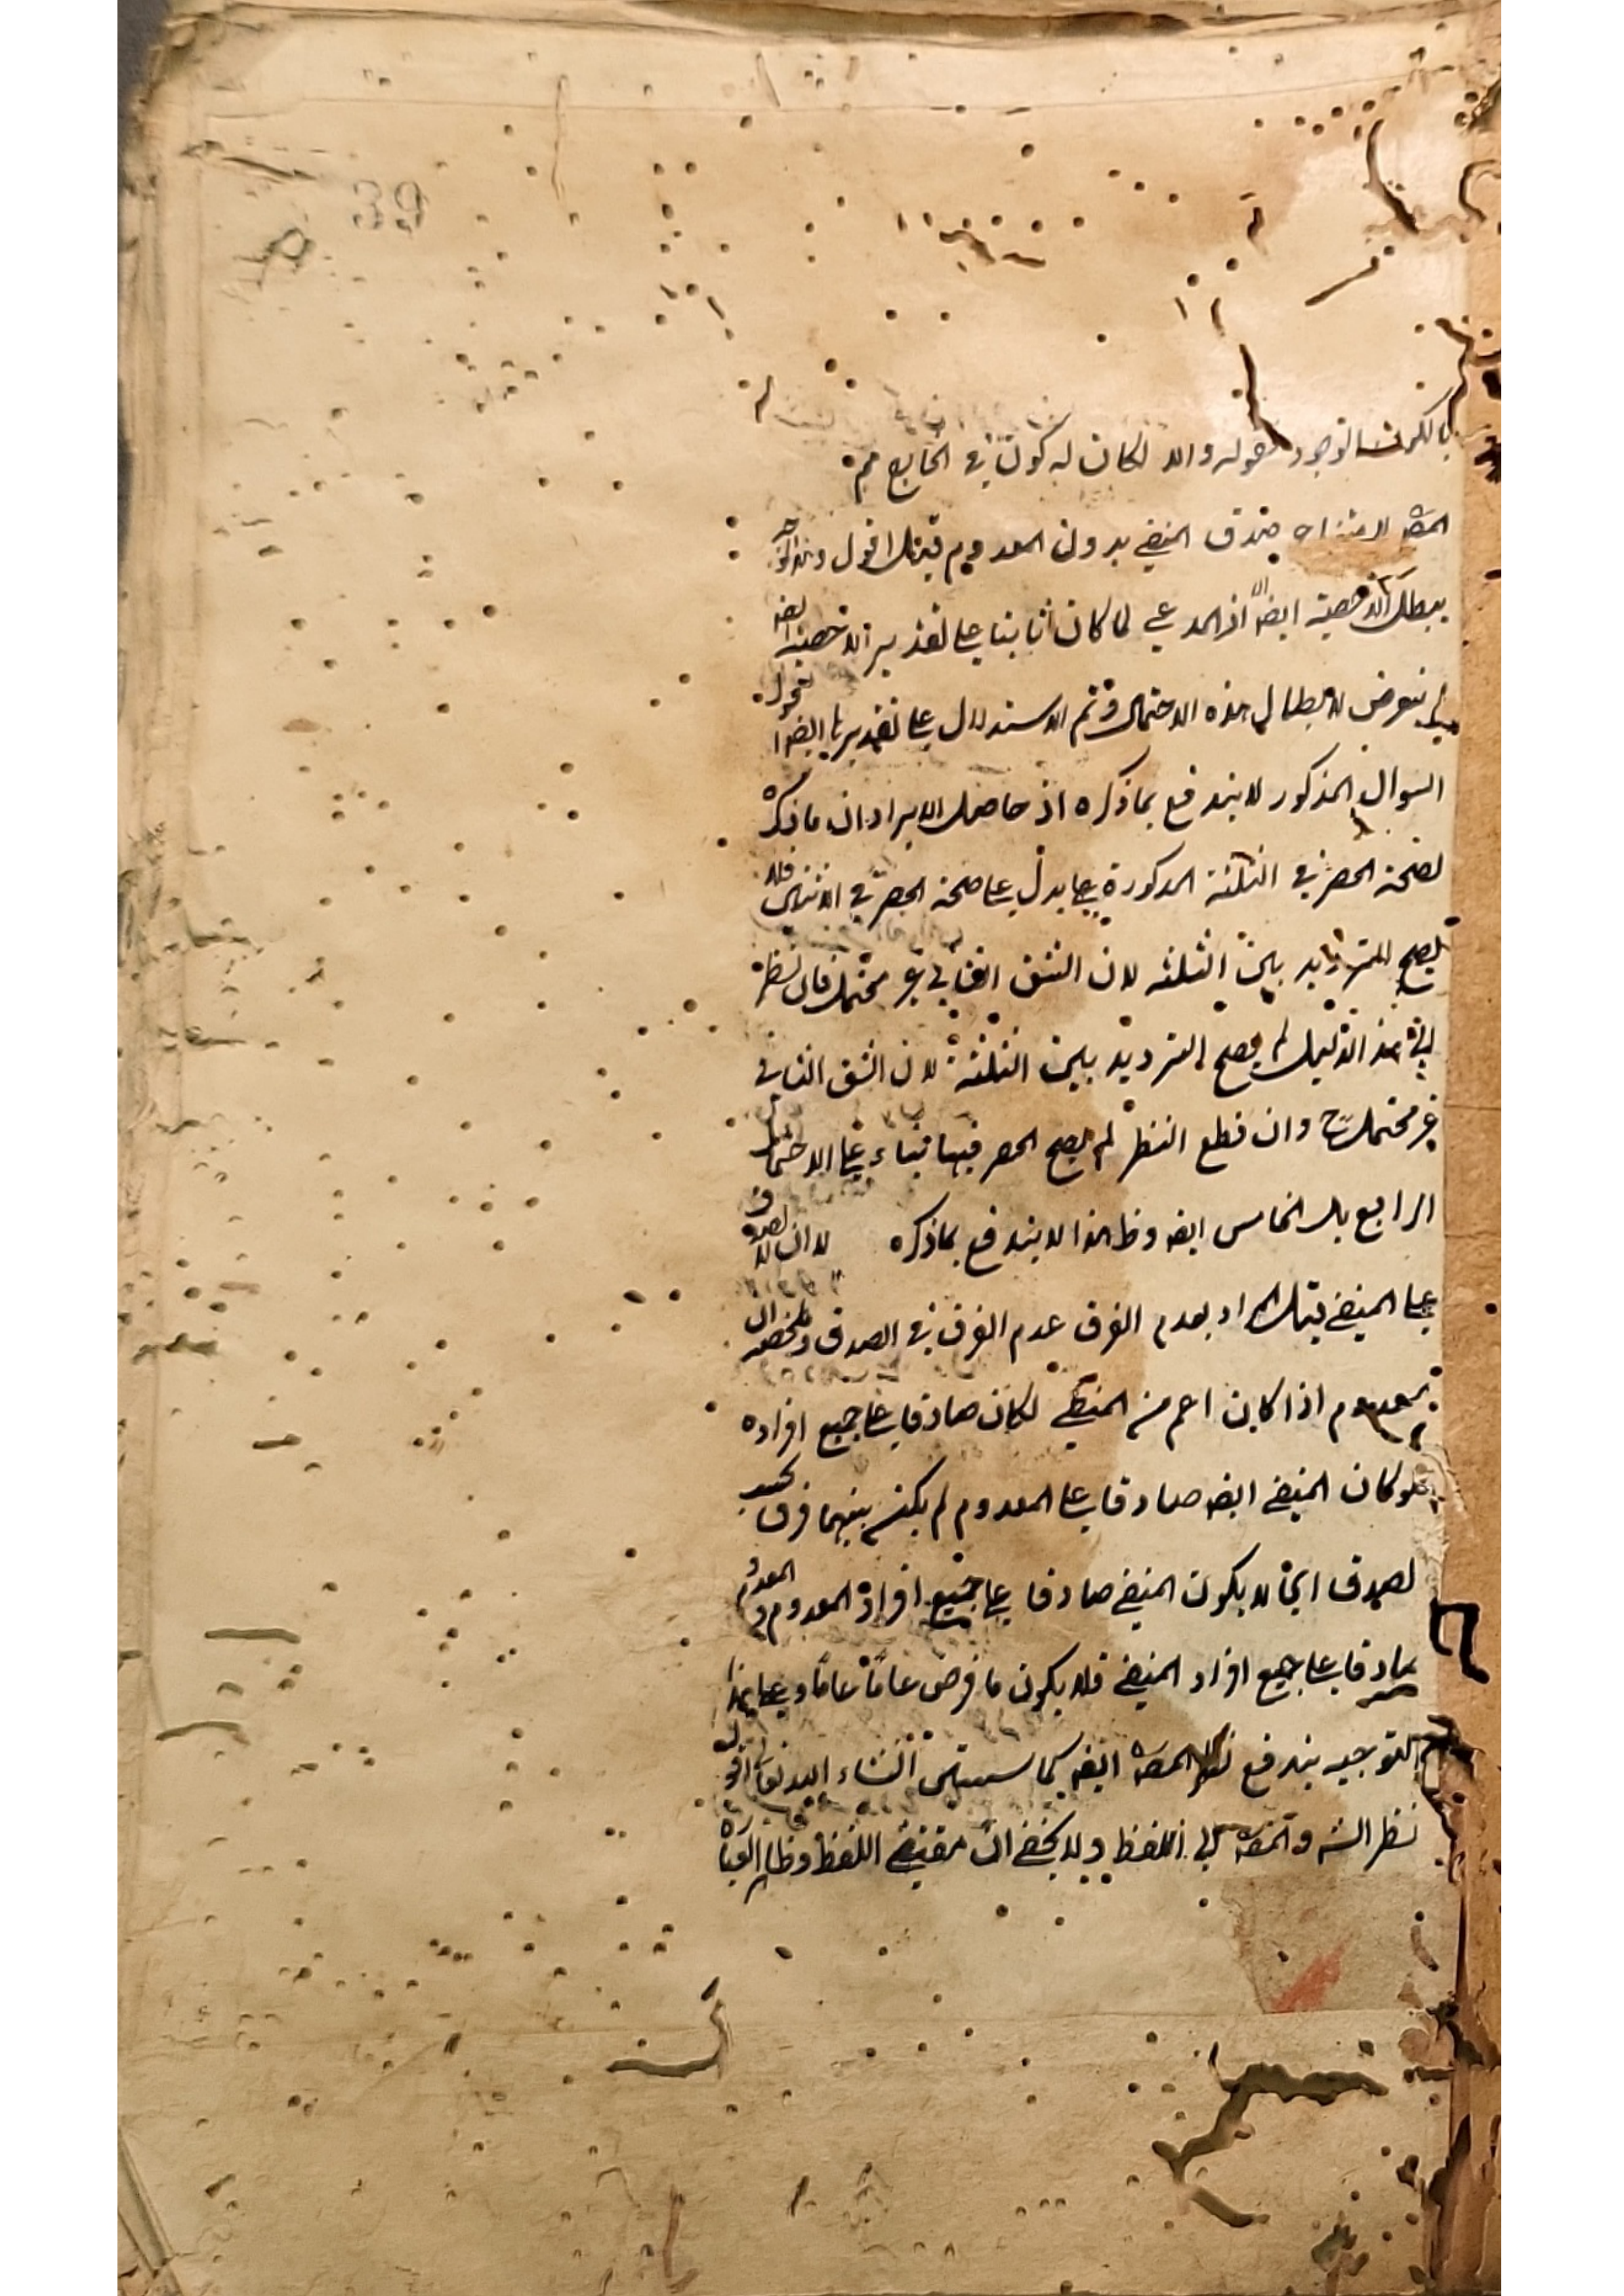 39
قوله والا لكان له كون في الخارج مم
المص لامتناع صدق المنفي بدون المعدوم قيل اقول وهذا
يبطل الاخصية ايضا اذ المدعي لما كان ثابتا على تقدير الاخصية ايضا
لم يتعرض لابطال هذه الاحتمال وتم الاستدلال على تقديرها ايضا
السوال المذكور لا يندفع بما ذكره اذ حاصل الايراد ان ما ذكره
لصحة الحصر في الثلثة المذكورة يدل على صحة الحصر في الاثنين فلا
يصح الترديد بين الثلثة لان الشق الثاني غير محتمل فان نظر
الى هذا الدليل لم يصح الترديد بين الثلثة لان الشق الثاني
غير محتمل ح وان قطع النظر لم يصح الحصر فيها بناء على الاحتمال
الرابع بل الخامس ايضه وظ هذا لا يندفع بما ذكره لان
على المنفي قيل المراد بعدم الفرق عدم الفرق في الصدق
المعدوم اذا كان اعم من المنفي لكان صادقا على جميع افراده
فلو كان المنفي ايضه صادقا على المعدوم لم يكن بينهما فرق بحسب
الصدق لا يكون المنفي صادقا على جميع افراد المعدوم والمعدوم
صادقا على جميع افراد المنفي فلا يكون ما فرض عاما عاما وعلى هذا
التوجيه يندفع نظر المصه ايضه كما ستقف انشاء الله تعالى
نظر الش والمصه الى اللفظ ولا يخفى ان مقتضى اللفظ وظاهر العبارة